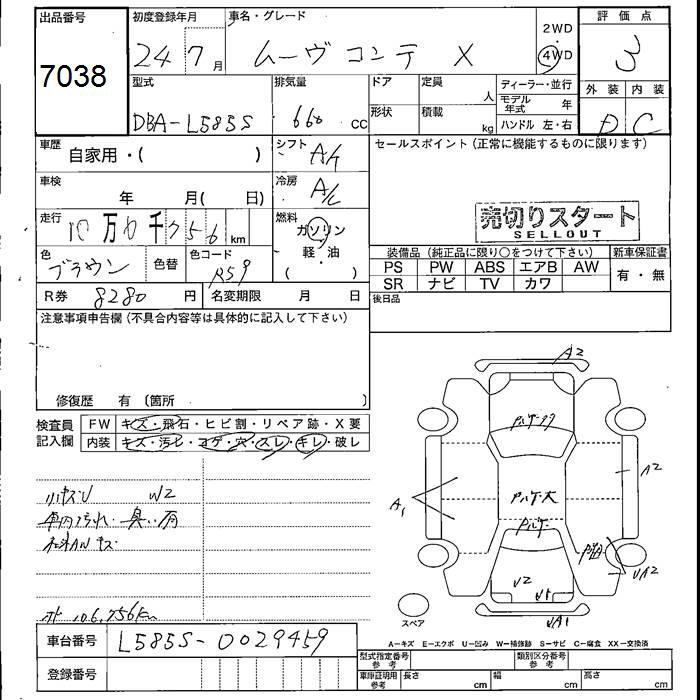 出品番号
7038
初度登録年月
24 7月
車名・グレード
ムーヴ コンテ X
2WD
・
4WD
評価点
3
外装 内装
D C
型式
DBA-L585S
排気量
660 cc
ドア
形状
定員
人
積載
kg
ディーラー・並行
モデル年式 年
ハンドル 左・右
車歴
自家用・( )
シフト
A/T
車検
年 月( 日)
冷房
A/C
走行
万 千 756 km
燃料
ガソリン
軽・油
( )
色
ブラウン
色替
色コード
R59
R券 8280 円
名変期限 月 日
セールスポイント(正常に機能するものに限ります)
売切りスタート
SELLOUT
装備品(純正品に限り○をつけて下さい)
PS PW ABS エアB AW
SR ナビ TV カワ
新車保証書
有・無
後日品
注意事項申告欄(不具合内容等は具体的に記入して下さい)
修復歴 有 〔箇所 〕
検査員記入欄
FW キズ・飛石・ヒビ割・リペア跡・X要
内装 キズ・汚レ・コゲ・穴・スレ・キレ・破レ
W2
車内汚れ・臭い・雨
106,756km
A2
A1
A2
UA2
U2
UA1
スペア
A―キズ E―エクボ U―凹み W―補修跡 S―サビ C―腐食 XX―交換済
車台番号 L585S-0029459
登録番号
型式指定番号 参考
類別区分番号 参考
車庫証明用 参考
長さ cm
幅 cm
高さ cm